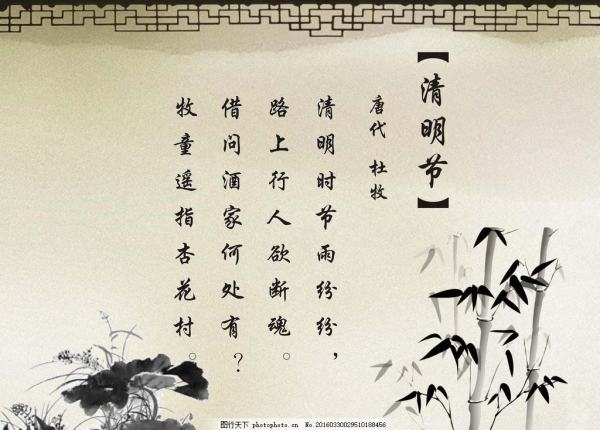 【清明节】
唐代 杜牧
清明时节雨纷纷，
路上行人欲断魂。
借问酒家何处有？
牧童遥指杏花村。
图行天下 photophoto.cn No.20160330029510188456